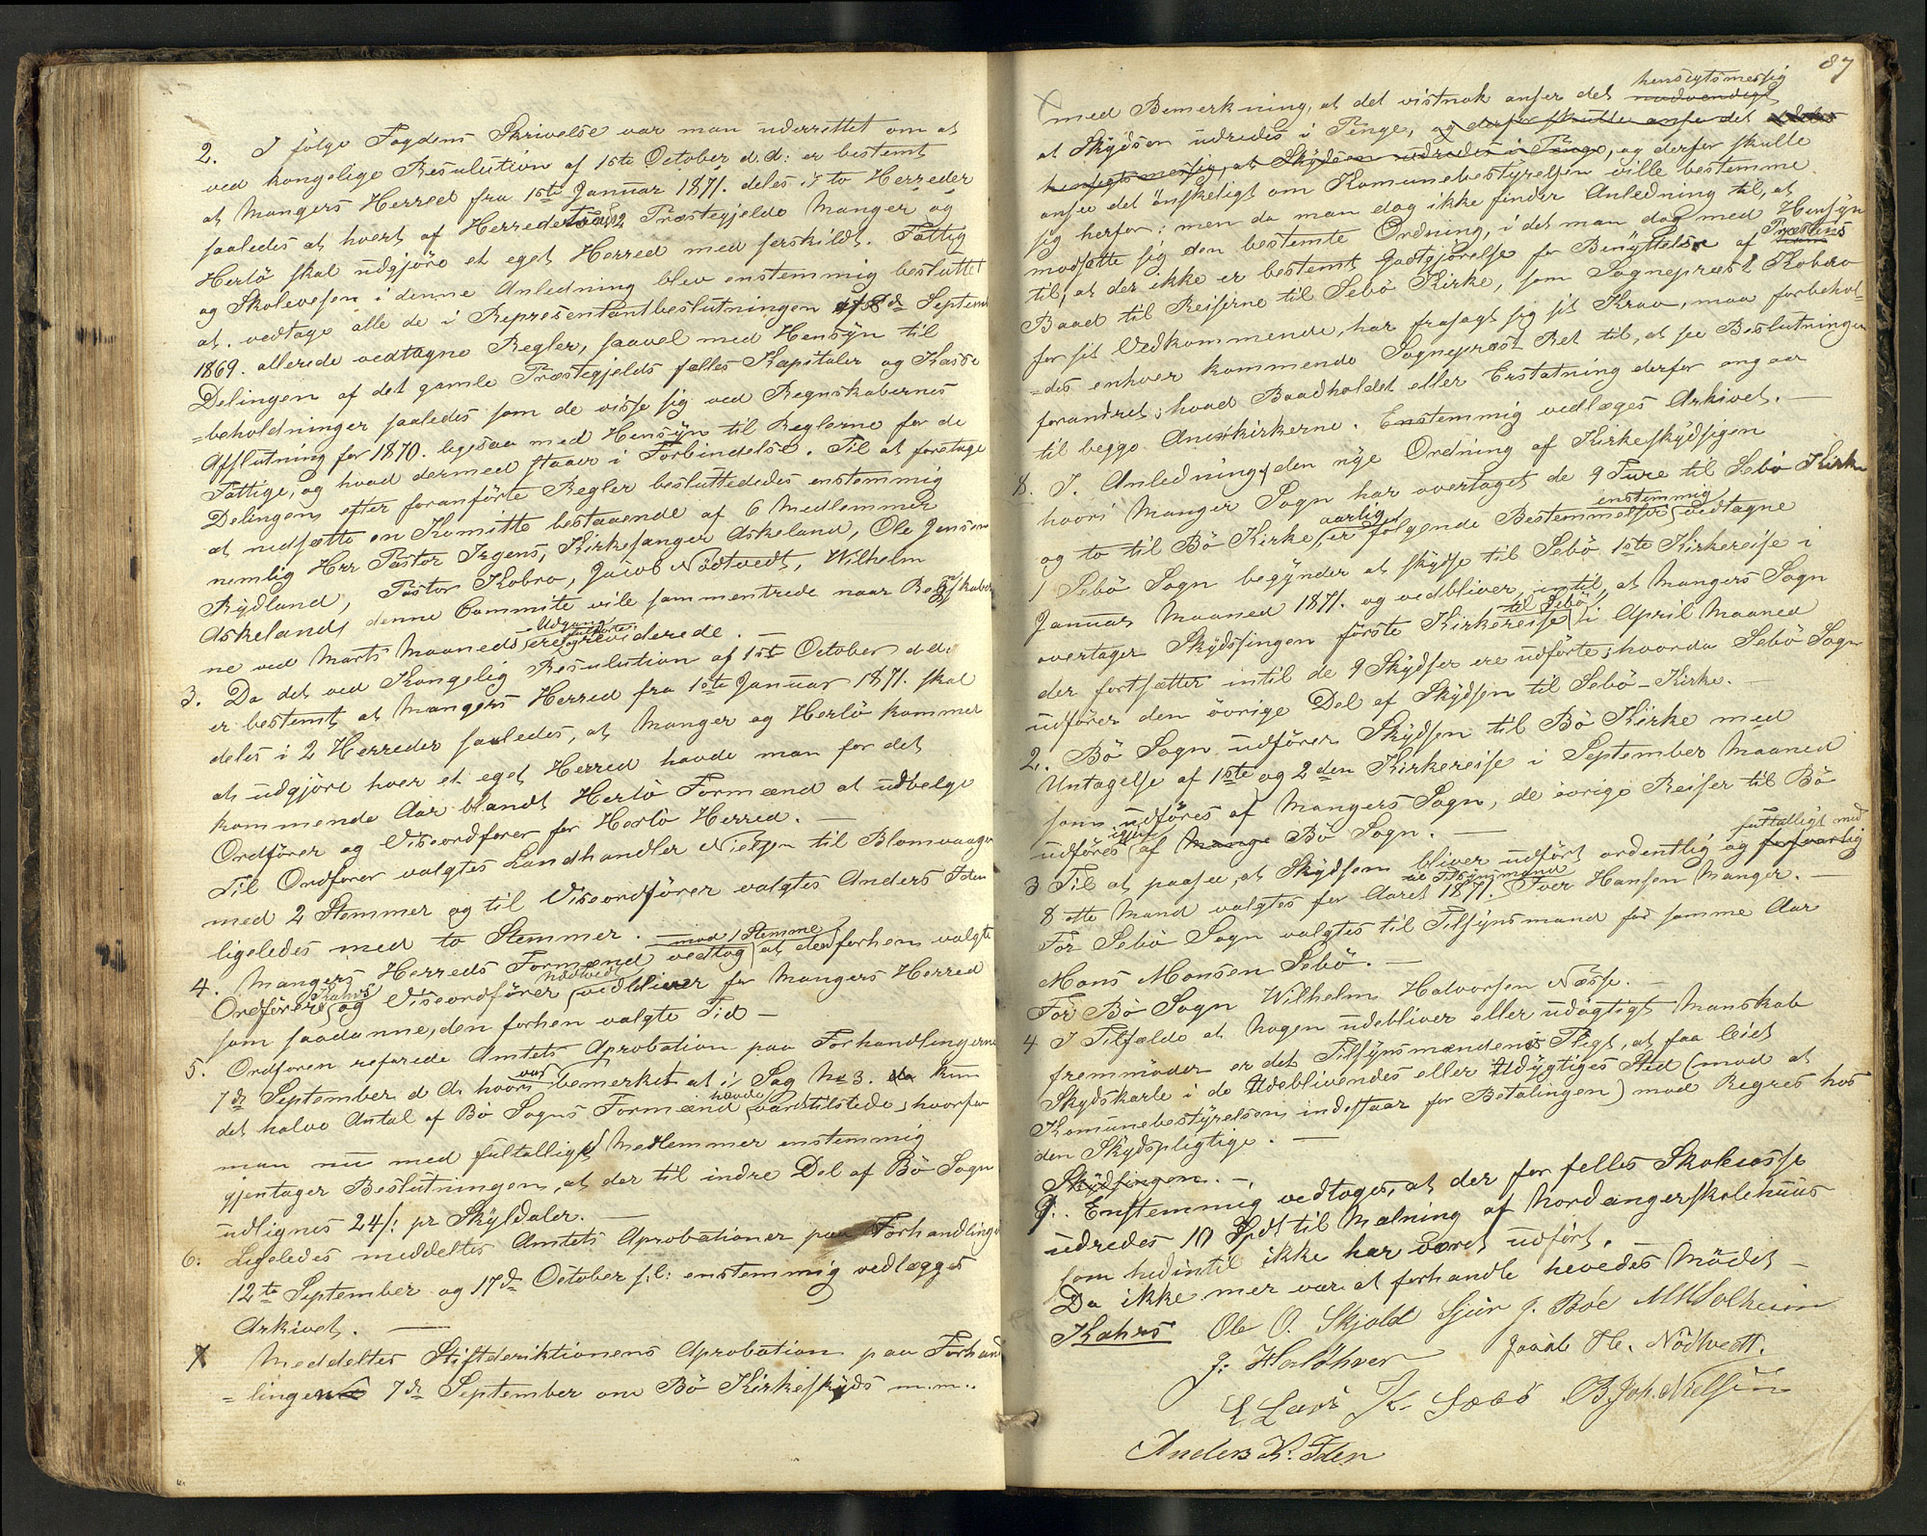 2. I følge Fogdens Skrivelse var man underrettet om at
ved kongelige Resulution af 1ste October d.d: er bestemt
at Mangers Herred fra 1ste Januar 1871. deles i to Herreder
saaledes at hvert af Herredets 2 Præstegjelde Manger og
Herlö skal udgjöre et eget Herred med serskildt. Fattig
og Skolevesen i denne Anledning blev enstemmig besluttet
at. vedtage alle de i Representantbeslutningen af 8de Septem
1869. allerede vedtagne Regler, saavel med Hensyn til
Delingen af det gamle Præstegjelds felles Kapitaler og Kasse
=beholdninger saaledes som de visse sig ved Regnskabernes
Afslutning for 1870. ligesaa med Hensyn til Reglerne for de
Fattige, og hvad dermed staar i Forbindelse. Til at foretage
Delingen efter foranförte Regler besluttededes enstemmig
at nedsætte en Komitte bestaaende af 6 Medlemmer
nemlig Hrr Pastor Irgens, Kirkesanger Askeland, Ole Jensen
Rydland, Pastor Kobro, Jacob Nödtvedt, Wilhelm
Askeland denne Committe vile sammentrede naar Regskaber
ne ved Marts Maaneds Udgang ere reviderede. —
3. Da det ved Kongelig Resulution af 1ste October d.d:
er bestemt at Mangers Herred fra 1ste Januar 1871. skal
deles i 2 Herreder saaledes, at Manger og Herlö kommer
at udgjöre hver et eget Herred havde man for det
kommende Aar blandt Herlö Formænd at udvelge
Ordförer og Viseordförer for Herlö Herred. —
Til Ordförer valgtes Landhandler Nielsen til Blomvaag
med 2 Stemmer og til Viseordförer valgtes Anders Iden
ligeledes med to Stemmer. —
4. Mangers Herreds Formænd vedtog mod 1 Stemme at den forhen valgte
Ordförer Kahrs og Viseordförer Nödtvedt vedbliver for Mangers Herred
som saadanne, den forhen valgte Tid —
5. Ordforen referede Amtets Aprobation paa Forhandlingerne
7de September d A. hvori var bemerket at i Sag No 3. kun
det halve Antal af Bö Sogns Formænd havde varet tilstede, hvorfor
man nu med fultallige Medlemmer enstemmig
gjentager Beslutningen, at der til indre Del af Bö Sogn
udlignes 24 s: pr Skyldaler. —
6. Ligeledes meddeltes Amtets Aprobationer paa Forhandlinge
12te September og 17de October s:l: enstemmig vedlægges
Arkivet. —
7 Meddeltes Stiftderiktionens Aprobation paa Forhand
=lingen 7de September om Bö Kirkeskyds m.m.
87
med Bemerkning, at det vistnok anser det nødvendigt hensigtsmessig
at Skydsen udredes i Penge, og derfor skulde anse det
hensigtsmessig, at Skydsen udredes i Penge, og derfor skulle
ansee det önskeligt om Komunebestyrelsen ville bestemme
sig herfor; men da man dog ikke finder Anledning til, at
modsette sig den bestemte Ordning, i det man dog med Hensyn
til, at der ikke er bestemt Godtgjörelse for Benyttelse af Præstens
Baad til Reiserne til Sebö Kirke, som Sognepræst Kobro
for sit Vedkommende, har frasagt sig sit Krav, maa forbehol=
=des enhver kommende Sognepræst Ret til, at see Beslutningen
forandret, hvad Baadholdet eller Erstatning derfor angaar
til begge Anexkirkerne. Enstemmig vedlæges Arkivet. —
8. I Anledning den nye Ordning af Kirkeskydsigen
hvori Manger Sogn har overtaget de 9 Ture til Sebö Kirke
og to til Bö Kirke aarlig, er fölgende Bestemmelser enstemmig vedtagne
1 Sebö Sogn begynder at skydse til Sebö 1ste Kirkereise i
Januar Maaned 1871. og vedbliver, intil, at Mangers Sogn
overtager Skydsingen förste Kirkereise til Sebö i April Maaned
der fortsætter intil de 9 Skydser ere udförte, hvorda Sebö Sogn
udförer den övrige Del af Skydsen til Sebö-Kirke. —
2. Bö Sogn udförer Skydsen til Bö Kirke med
Untagelse af 1ste og 2den Kirkereise i September Maaned
som udföres af Mangers Sogn, de övrige Reiser til Bö
udföres igjen af Bö Sogn. —
3 Til at paasee, at Skydsen bliver udfört ordentlig og fultalligt med
8 ette Mand valgtes for Aaret 1871. til Tilsynsmand Iver Hansen Manger. —
For Sebö Sogn valgtes til Tilsynsmand for samme Aar
Mons Monsen Sebö. —
For Bö Sogn Wilhelm Halvorsen Næsse. —
4 I Tilfælde at nogen udebliver eller udögtigt Manskab
fremmöder er det Tilsynsmændenes Pligt, at faa leiet
Skydskarle i de Udeblivendes eller Udygtiges Sted (mod at
Komunebestyrelsen indestaar for Betalingen) mod Regres hos
den Skydspligtige. —
Skydsingen. —
9. Enstemmig vedtoges, at der for felles Skolecasse
udredes 10 Spd til Malning af Nordangerskolehuus
som hedintil ikke har været udfört. —
Da ikke mer var at forhandle hevedes Mödet —
Kahrs Ole O. Skjold Sjur J. Böe
Jacob H. Nödtvedt.
E Lars K Sæbö B. Joh. Nielsen
Anders K. Iden